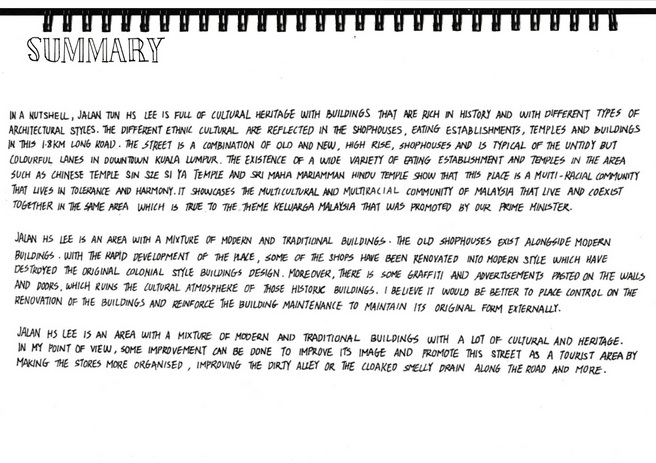 SUMMARY
IN A NUTSHELL, JALAN TUN HS LEE IS FULL OF CULTURAL HERITAGE WITH BUILDINGS THAT ARE RICH IN HISTORY AND WITH DIFFERENT TYPES OF
ARCHITECTURAL STYLES. THE DIFFERENT ETHNIC CULTURAL ARE REFLECTED IN THE SHOPHOUSES, EATING ESTABLISHMENTS, TEMPLES AND BUILDINGS
IN THIS 1.8KM LONG ROAD. THE STREET IS A COMBINATION OF OLD AND NEW, HIGH RISE, SHOPHOUSES AND IS TYPICAL OF THE UNTIDY BUT
COLOURFUL LANES IN DOWNTOWN KUALA LUMPUR. THE EXISTENCE OF A WIDE VARIETY OF EATING ESTABLISHMENT AND TEMPLES IN THE AREA
SUCH AS CHINESE TEMPLE SIN SZE SI YA TEMPLE AND SRI MAHA MARIAMMAN HINDU TEMPLE SHOW THAT THIS PLACE IS A MULTI-RACIAL COMMUNITY
THAT LIVES IN TOLERANCE AND HARMONY. IT SHOWCASES THE MULTICULTURAL AND MULTIRACIAL COMMUNITY OF MALAYSIA THAT LIVE AND COEXIST
TOGETHER IN THE SAME AREA WHICH IS TRUE TO THE THEME KELUARGA MALAYSIA THAT WAS PROMOTED BY OUR PRIME MINISTER.
JALAN HS LEE IS AN AREA WITH A MIXTURE OF MODERN AND TRADITIONAL BUILDINGS. THE OLD SHOPHOUSES EXIST ALONGSIDE MODERN
BUILDINGS. WITH THE RAPID DEVELOPMENT OF THE PLACE, SOME OF THE SHOPS HAVE BEEN RENOVATED INTO MODERN STYLE WHICH HAVE
DESTROYED THE ORIGINAL COLONIAL STYLE BUILDINGS DESIGN. MOREOVER, THERE IS SOME GRAFFITI AND ADVERTISEMENTS PASTED ON THE WALLS
AND DOORS, WHICH RUINS THE CULTURAL ATMOSPHERE OF THOSE HISTORIC BUILDINGS. I BELIEVE IT WOULD BE BETTER TO PLACE CONTROL ON THE
RENOVATION OF THE BUILDINGS AND REINFORCE THE BUILDING MAINTENANCE TO MAINTAIN ITS ORIGINAL FORM EXTERNALLY.
JALAN HS LEE IS AN AREA WITH A MIXTURE OF MODERN AND TRADITIONAL BUILDINGS WITH A LOT OF CULTURAL AND HERITAGE.
IN MY POINT OF VIEW, SOME IMPROVEMENT CAN BE DONE TO IMPROVE ITS IMAGE AND PROMOTE THIS STREET AS A TOURIST AREA BY
MAKING THE STORES MORE ORGANISED, IMPROVING THE DIRTY ALLEY OR THE CLOAKED SMELLY DRAIN ALONG THE ROAD AND MORE.